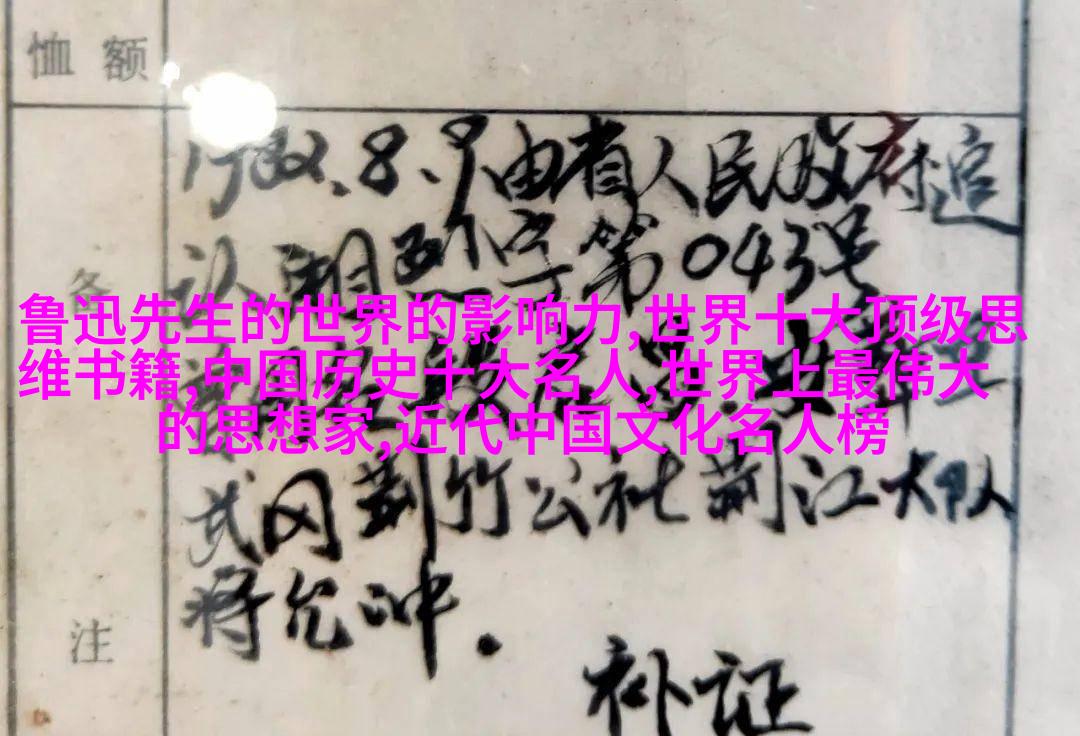 恤额
1982.8.9由省人民政府追
认湘烈字第043号
备
鲁迅先生的世界的影响力,世界十大顶级思
维书籍,中国历史十大名人,世界上最伟大
的思想家,近代中国文化名人榜
武冈荆竹公社荆江大队
蒋允冲.
注
补证